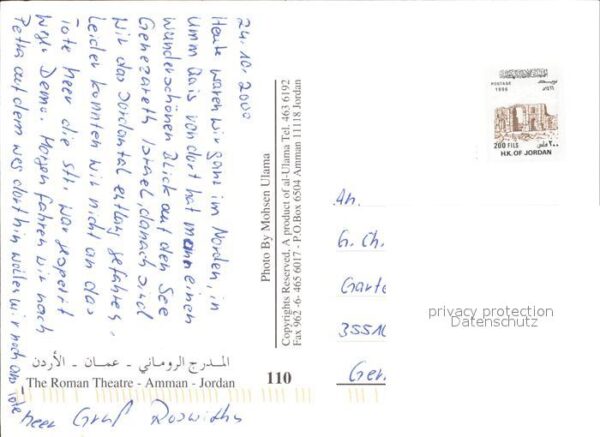 24.10.2000
Heute waren wir ganz im Norden, in
Umm Qais von dort hat man einen
wunderschönen Blick auf den See
Genezareth Israel, danach sind
wir das Jordantal entlang gefahren.
Leider konnten wir nicht an das
Tote Meer die Str. war gesperrt
weg. Demo. Morgen fahren wir nach
Petra auf dem Weg dorthin wollen wir noch ans Tote
Meer Gruß Roswitha
المدرج الروماني - عمان - الأردن
The Roman Theatre - Amman - Jordan
110
Photo By Mohsen Ulama
Copyrights Reserved. A product of al-Ulama Tel. 463 6192
Fax 962 -6- 465 6017 - P.O.Box 6504 Amman 11118 Jordan
POSTAGE
1996
200 FILS ٢٠٠ فلس
H.K. OF JORDAN
An.
G. Ch.
Garte
355
Ger
privacy protection
Datenschutz